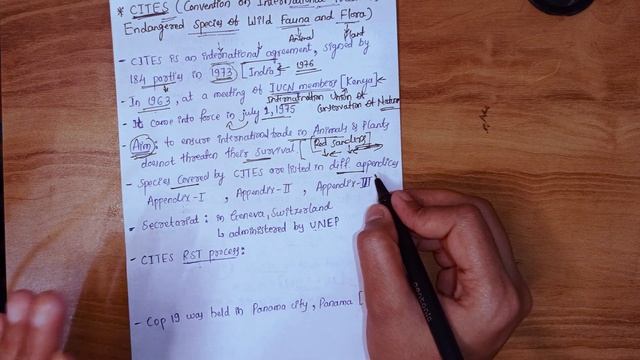 * CITES (Convention on International Trade in
Endangered Species of Wild Fauna and Flora)
Animal Plant
- CITES is an international agreement, signed by
184 parties in 1973 [India 1976
- In 1963, at a meeting of IUCN members [Kenya]
International Union of
Conservation of Nature
- It came into force in july 1, 1975
- Aim: to ensure international trade in Animals & Plants
does not threaten their survival [Red sanders]
- Species Covered by CITES are listed in diff appendices
Appendix-I , Appendix-II , Appendix-III
- Secretariat: in Geneva, Switzerland
↳ administered by UNEP
- CITES RST process:
- Cop 19 was held in Panama city, Panama [